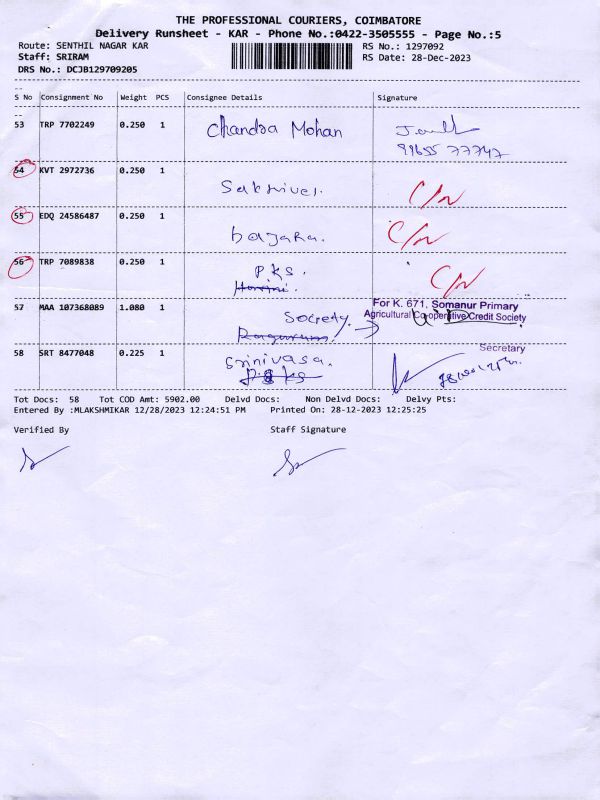 THE PROFESSIONAL COURIERS, COIMBATORE
Delivery Runsheet - KAR - Phone No.:0422-3505555 - Page No.:5
Route: SENTHIL NAGAR KAR RS No.: 1297092
Staff: SRIRAM RS Date: 28-Dec-2023
DRS No.: DCJB129709205
S No Consignment No Weight PCS Consignee Details Signature
53 TRP 7702249 0.250 1 Chandra Mohan
99655 77747
54 KVT 2972736 0.250 1 Sakthivel. C/N
55 EDQ 24586487 0.250 1 C/N
56 TRP 7089838 0.250 1 PKS. C/N
57 MAA 107368089 1.080 1 Society. For K. 671, Somanur Primary
Agricultural Co-operative Credit Society
Secretary
58 SRT 8477048 0.225 1 Srinivasa.
Tot Docs: 58 Tot COD Amt: 5902.00 Delvd Docs: Non Delvd Docs: Delvy Pts:
Entered By :MLAKSHMIKAR 12/28/2023 12:24:51 PM Printed On: 28-12-2023 12:25:25
Verified By Staff Signature